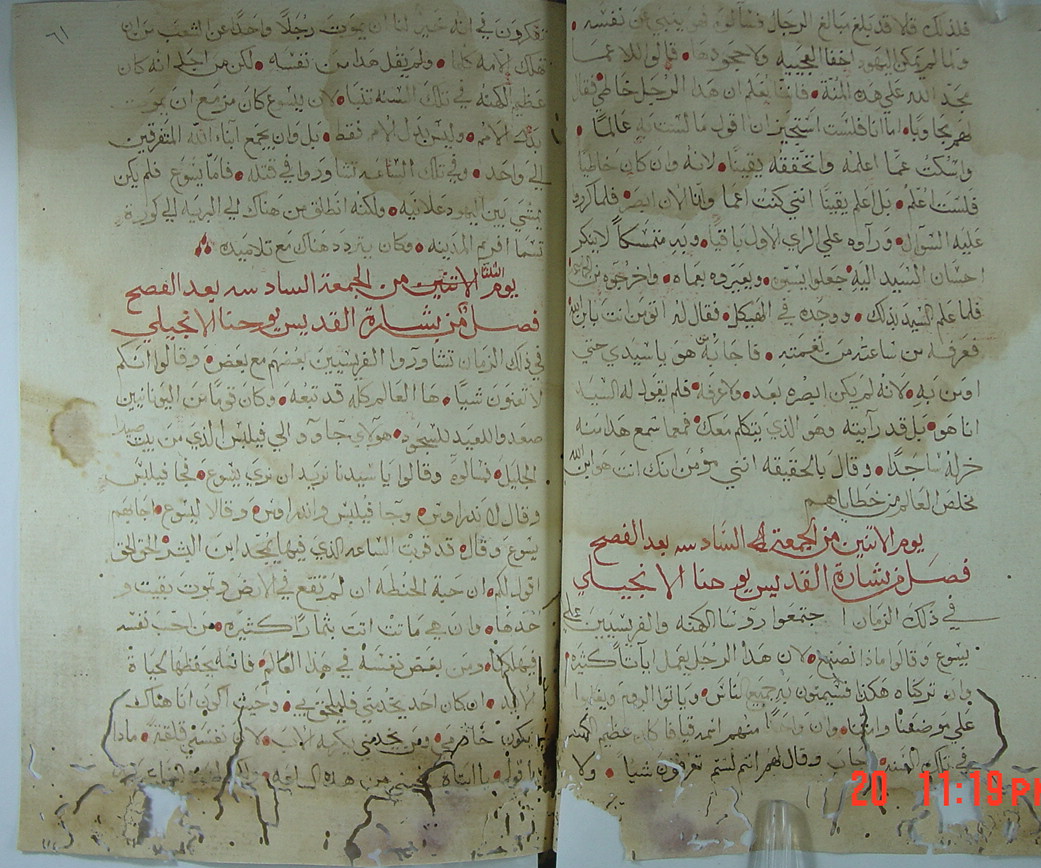 فلذلك قلا قد بلغ مبالغ الرجال فسألوه فهو ينبي عن نفسه
ولما لم يمكن اليهود اخفا العجيبه ولا جحودها قالوا للاعما
مجد الله على هذه المنة فاننا نعلم ان هذا الرجل خاطي فقال
لهم مجاوبا اما انا فلست استجيز ان اقول ما لست به عالما
واسكت عما اعلمه واتحققه يقينا لانه وان كان خاطيا
فلست اعلم بل اعلم يقينا انني كنت اعما وانا الان ابصر فلما كرروا
عليه السوال وراوه على الراي الاول باقيا وبه متمسكا لا ينكر
احسان السيد اليه جعلوا يسبوه ويعيروه بعماه واخرجوه من
فلما علم السيد بذلك ووجده في الهيكل فقال له اتومن انت بابن الله
فعرفه من ساعته من نغمته فاجابه من هو يا سيدي حتى
اومن به لانه لم يكن ابصره بعد ولا عرفه فلم يقول له السيد
انا هو بل قد رايته وهو الذي يتكلم معك فمعما سمع هذا منه
خر له ساجدا وقال بالحقيقه انني مومن انك انت هو ابن الله
مخلص العالم من خطاياهم
يوم الاثنين من الجمعة السادسه بعد الفصح
فصل من بشارة القديس يوحنا الانجيلي
في ذلك الزمان اجتمعوا روسا الكهنه والفريسيين على
يسوع وقالوا ماذا نصنع لان هذا الرجل يعمل ايات كثيره
وان تركناه هكذا فسيومنون به جميع الناس وياتوا الروم ويغلبوا
على موضعنا وامتنا وان واحدا منهم اسمه قيافا كان عظيم الكهنه
في تلك السنه اجاب وقال لهم انتم لستم تعرفون شيا ولا
٦١
تفكرون في انه خير لنا ان يموت رجلا واحدا عن الشعب من ان
تهلك الامه كلها ولم يقل هذا من نفسه لكن من اجل انه كان
عظيم الكهنه في تلك السنه تنبا لان يسوع كان مزمع ان يموت
بدل الامم وليس بدل الامم فقط بل وان يجمع ابناء الله المتفرقين
الى واحد وفي تلك الساعه تشاوروا في قتله فاما يسوع فلم يكن
يمشي بين اليهود علانيه ولكنه انطلق من هناك الى البريه الى كورة
تسما افريم المدينه وكان يتردد هناك مع تلاميذه
يوم الثلثا الاثنين من الجمعة السادسه بعد الفصح
فصل من بشارة القديس يوحنا الانجيلي
في ذلك الزمان تشاوروا الفريسيين بعضهم مع بعض وقالوا انكم
لا تغنون شيا ها العالم كله قد تبعه وكان قوما من اليونانيين
صعدوا للعيد للسجود هولاي جاووا الى فيلبس الذي من بيت صيدا
الجليل فسالوه وقالوا يا سيدنا نريد ان نرى يسوع فجا فيلبس
وقال لاندراوس وجا فيلبس واندراوس وقالا ليسوع اجابهم
يسوع وقال قد قربت الساعه الذي فيها يمجد ابن البشر الحق الحق
اقول لكم ان حبة الحنطة ان لم تقع في الارض وتموت بقيت
وحدها وان هي ماتت اتت بثمارا كثيره من احب نفسه
فيهلكها ومن بغض نفسه في هذا العالم فانه يحفظها لحياة
لابد ان كان احد يخدمني فليلحق بي وحيث اكون انا هناك
يكون خادمي ومن يخدمني يكرمه الاب لان نفسي قلقة ماذا
اقول يا ابتاه نجيني من هذه الساعه